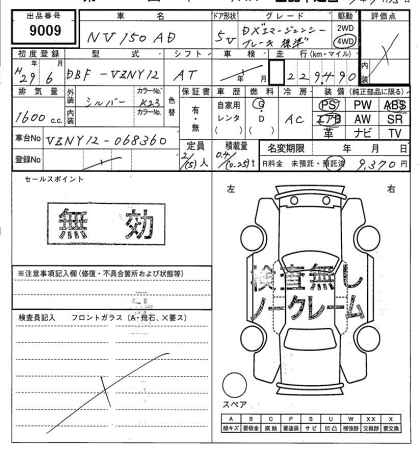 出品番号 車名 ドア形状 グレード 駆動 評価点
9009 NV150 AD 5V DXエマージェンシーブレーキ標準 2WD 4WD
初度登録 型式 シフト 車検 走行(km・マイル) 装備(純正部品に限る)
H29年6月 DBF-VZNY12 AT 年 月 229490 PS PW ABS
排気量 外装 シルバー カラーNo. K23 色替 保証書 車歴 燃料 冷房 エアB AW SR
1600c.c. 内装 カラーNo. 有・無 自家用 レンタ ( ) G・D ( ) AC 革 ナビ TV
車台No VZNY12-068360 定員 積載量 名変期限 年 月 日
登録No 2/(5)人 0.4/(0.25)t R料金 未預託・預託済 9,370円
セールスポイント 左 右
無効
検査無し
ノークレーム
※注意事項記入欄(修復・不具合箇所および状態等)
検査員記入 フロントガラス(A・飛石、X要ス)
スペア
A B C P S U W XX X
線キズ 要板金 腐蝕 要塗装 サビ 凹凸 補修跡 交換跡 要交換